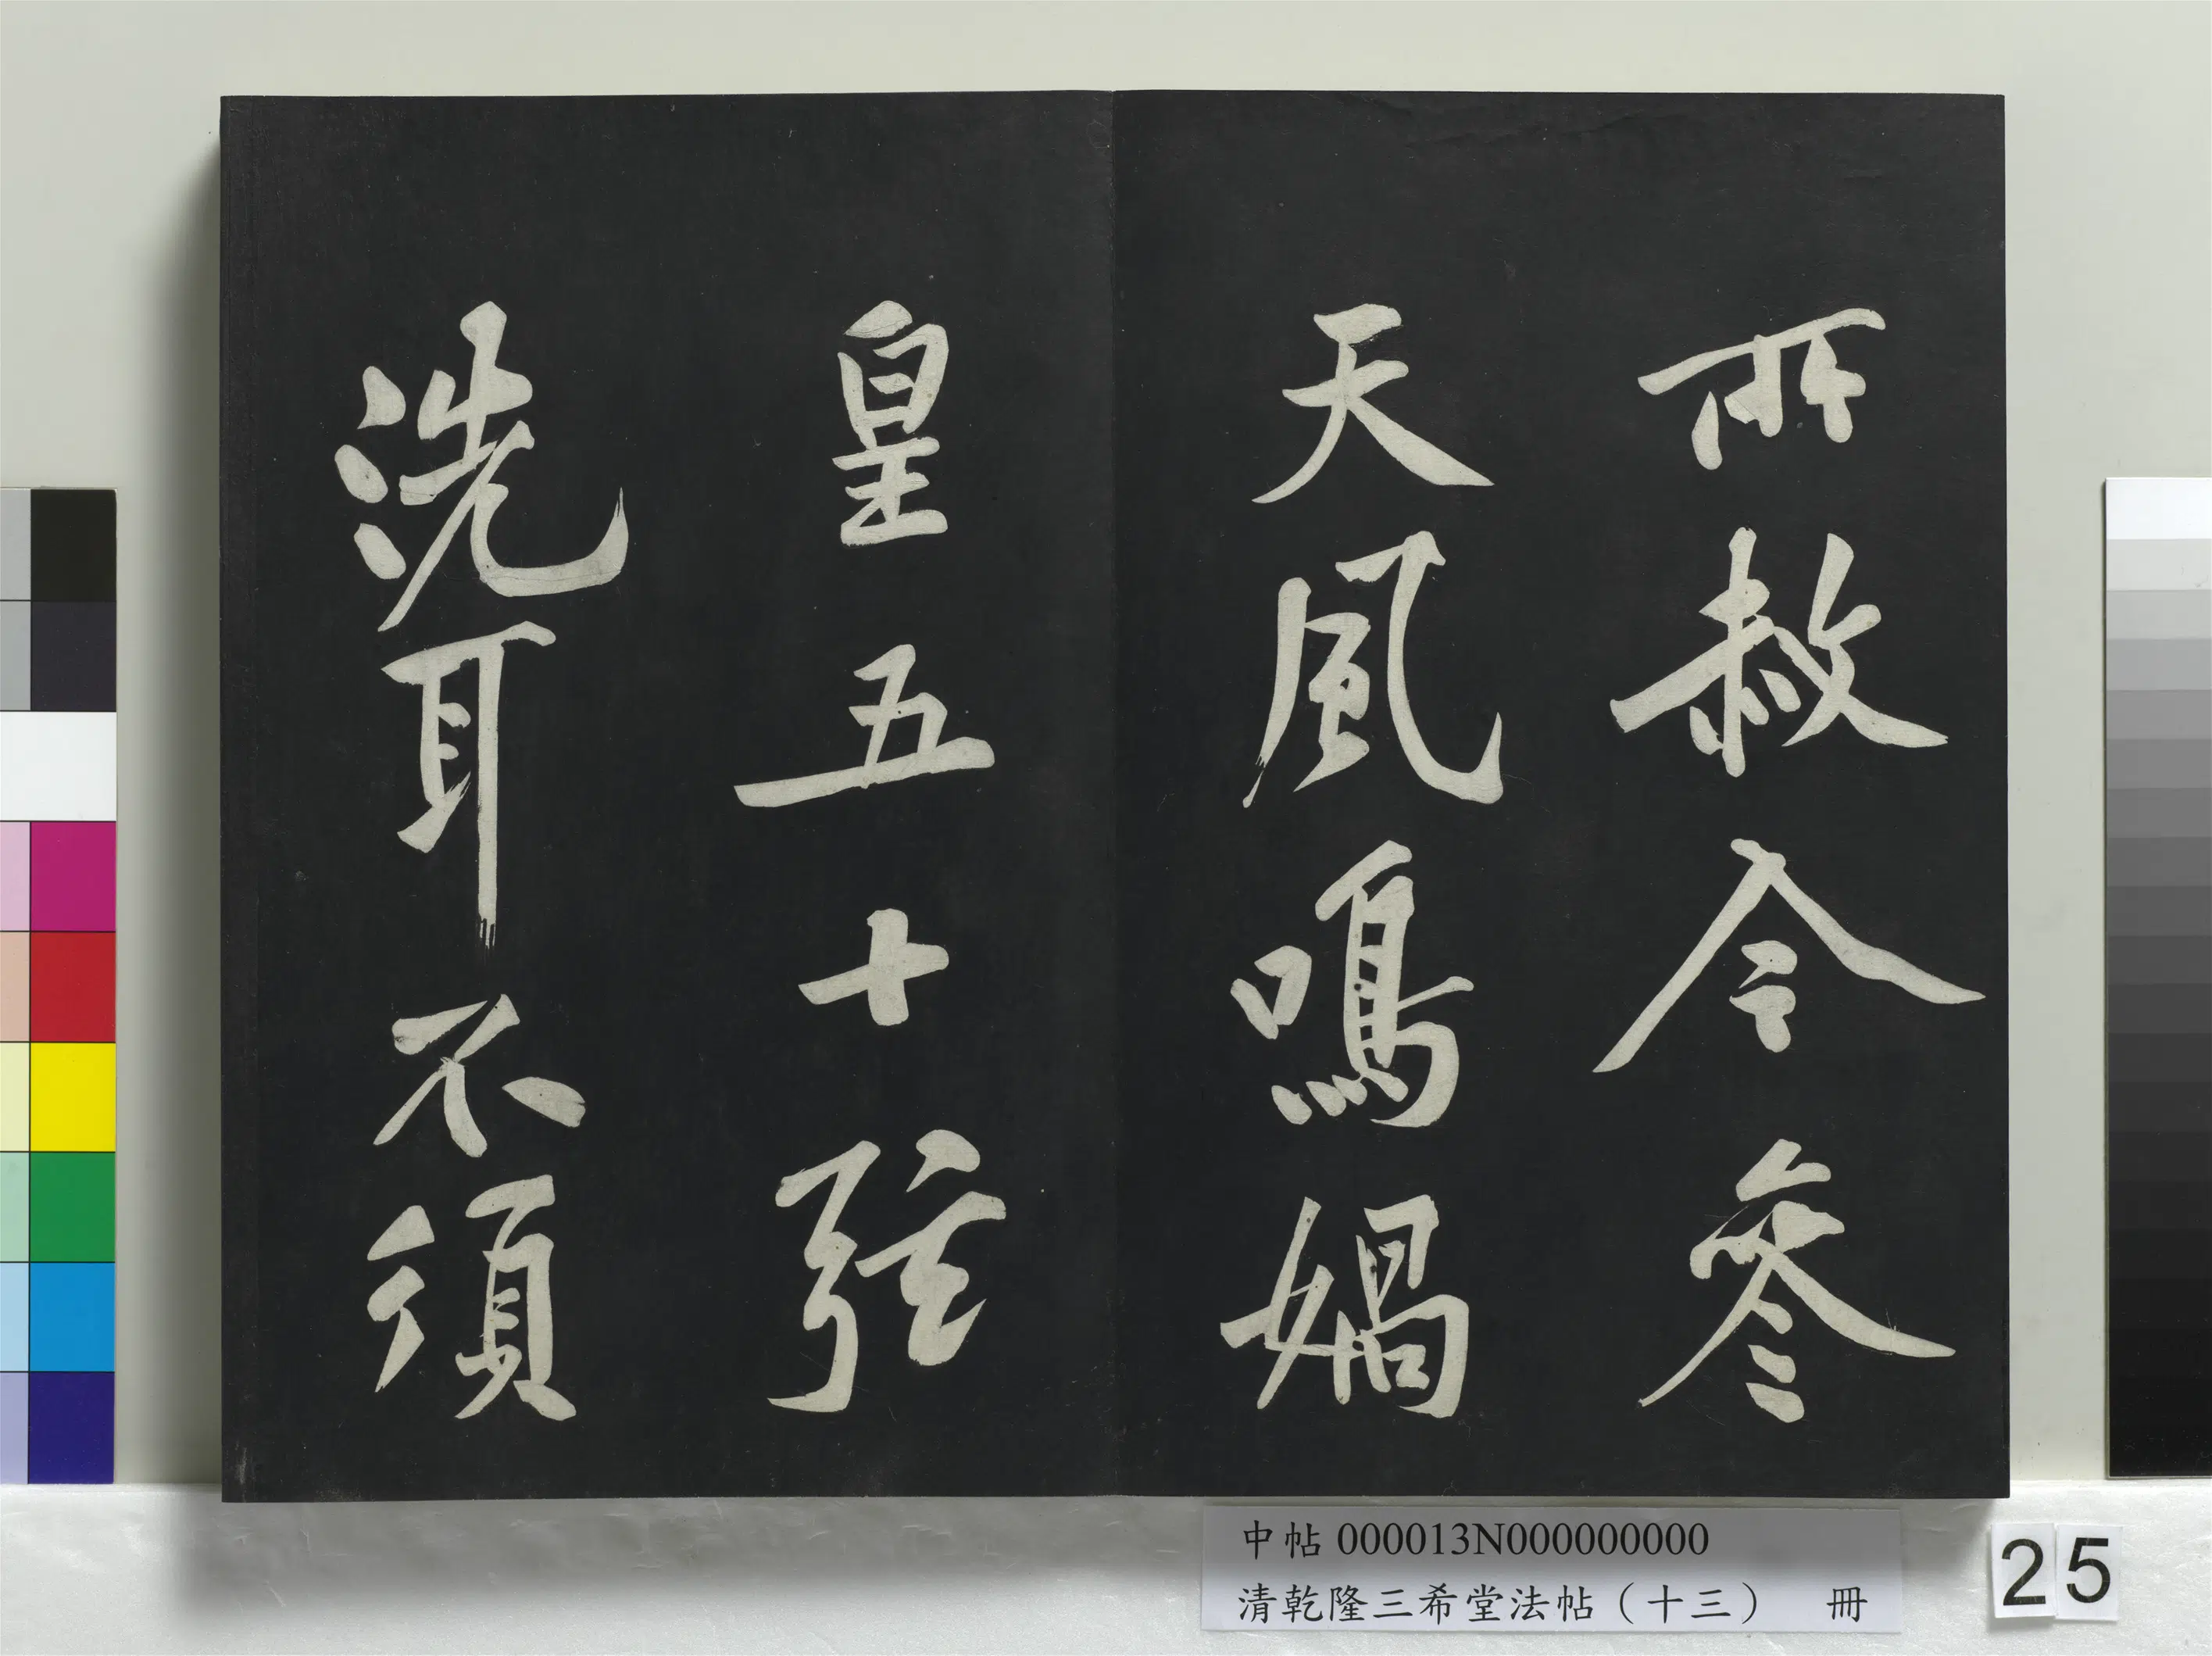 所赦令參
天風鳴媧
皇五十弦
洗耳不須
中帖 000013N000000000
清乾隆三希堂法帖（十三） 冊
25